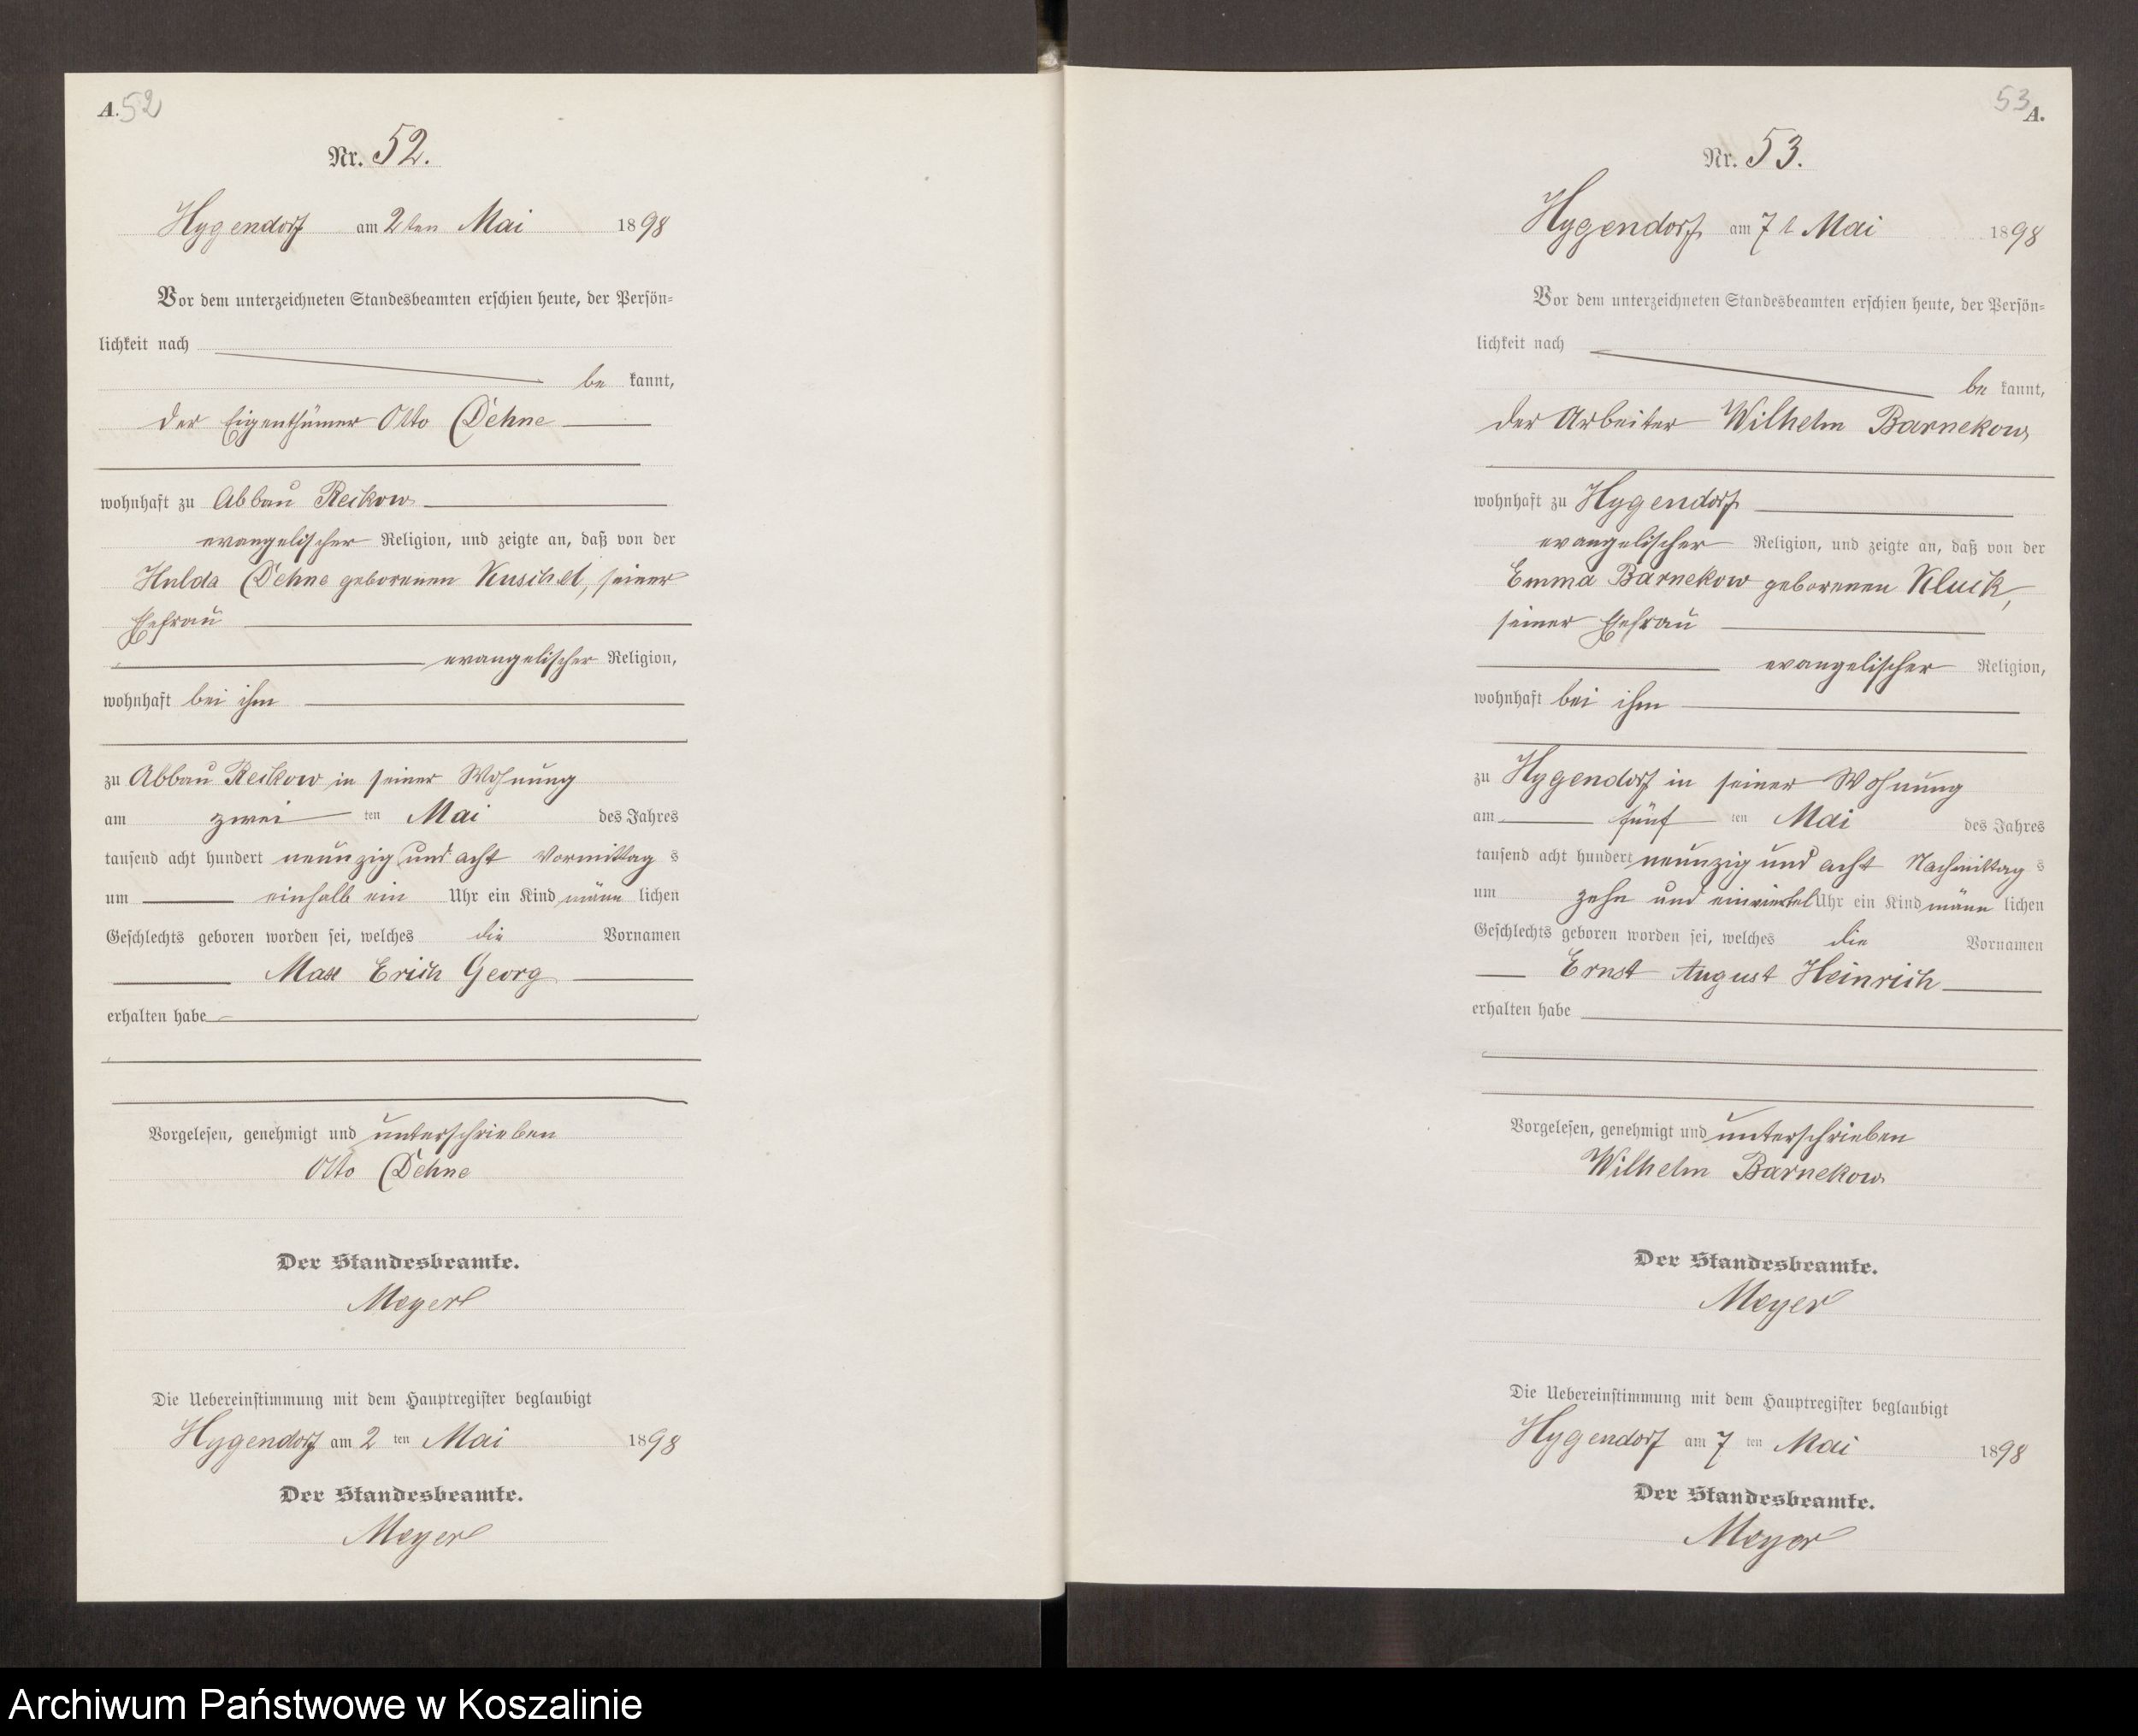 A. 52
Nr. 52.
Hygendorf am 2ten Mai 1898
Vor dem unterzeichneten Standesbeamten erschien heute, der Persön-
lichkeit nach
be kannt,
der Eigenthümer Otto Dehne
wohnhaft zu Abbau Reckow
evangelischer Religion, und zeigte an, daß von der
Hulda Dehne geborenen Kuschel, seiner
Ehefrau
evangelischer Religion,
wohnhaft bei ihm
zu Abbau Reckow in seiner Wohnung
am zwei ten Mai des Jahres
tausend acht hundert neunzig und acht Vormittag s
um einhalb ein Uhr ein Kind männ lichen
Geschlechts geboren worden sei, welches die Vornamen
Max Erich Georg
erhalten habe
Vorgelesen, genehmigt und unterschrieben
Otto Dehne
Der Standesbeamte.
Meyer
Die Uebereinstimmung mit dem Hauptregister beglaubigt
Hygendorf am 2 ten Mai 1898
Der Standesbeamte.
Meyer
53 A.
Nr. 53.
Hygendorf am 7 t Mai 1898
Vor dem unterzeichneten Standesbeamten erschien heute, der Persön-
lichkeit nach
be kannt,
der Arbeiter Wilhelm Barnekow
wohnhaft zu Hygendorf
evangelischer Religion, und zeigte an, daß von der
Emma Barnekow geborenen Kluck,
seiner Ehefrau
evangelischer Religion,
wohnhaft bei ihm
zu Hygendorf in seiner Wohnung
am fünf ten Mai des Jahres
tausend acht hundert neunzig und acht Nachmittag s
um zehn und einviertel Uhr ein Kind männ lichen
Geschlechts geboren worden sei, welches die Vornamen
Ernst August Heinrich
erhalten habe
Vorgelesen, genehmigt und unterschrieben
Wilhelm Barnekow
Der Standesbeamte.
Meyer
Die Uebereinstimmung mit dem Hauptregister beglaubigt
Hygendorf am 7 ten Mai 1898
Der Standesbeamte.
Meyer
Archiwum Państwowe w Koszalinie